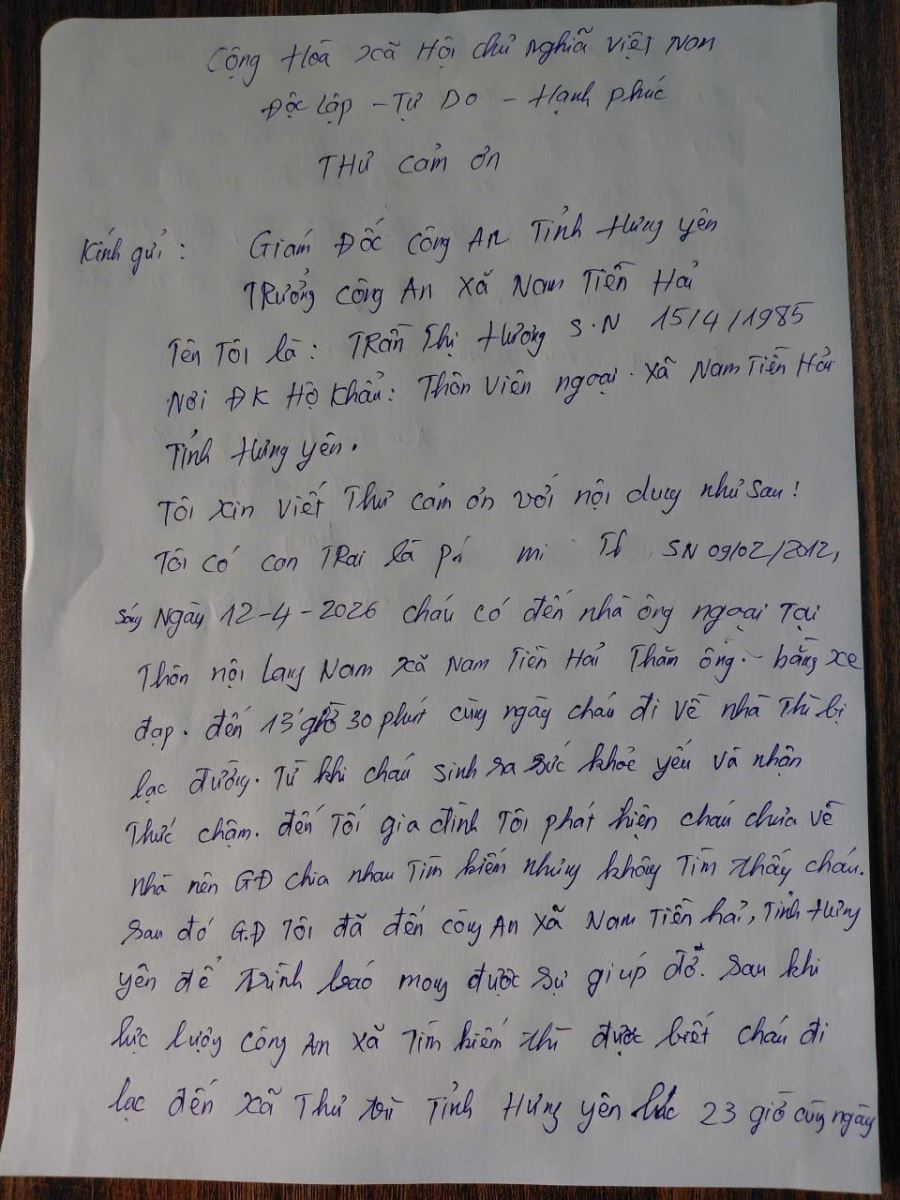 Cộng Hòa xã Hội chủ nghĩa Việt Nam
Độc Lập - Tự Do - Hạnh phúc
THƯ cảm ơn
Kính gửi : Giám Đốc công An Tỉnh Hưng yên
TRưởng công An xã Nam Tiền Hải
Tên Tôi là : TRần Thị Hương S.N 15/4/1985
Nơi ĐK Hộ Khẩu : Thôn Viên ngoại . xã Nam Tiền Hải
Tỉnh Hưng yên .
Tôi xin viết Thư cảm ơn với nội dung như sau !
Tôi có con TRai là mi SN 09/02/2012,
sáng Ngày 12-4-2026 cháu có đến nhà ông ngoại Tại
Thôn nội Lang Nam xã Nam Tiền Hải Thăm ông . bằng xe
đạp . đến 13 giờ 30 phút cùng ngày cháu đi về nhà Thì bị
lạc đường . Từ khi cháu sinh ra sức khỏe yếu và nhận
Thức chậm . đến Tối gia đình Tôi phát hiện cháu chưa về
nhà nên GĐ chia nhau Tìm kiếm nhưng không Tìm thấy cháu.
Sau đó G.Đ Tôi đã đến công An xã Nam Tiền hải, Tỉnh Hưng
yên để Trình báo mong được sự giúp đỡ . sau khi
lực lượng công An xã Tìm kiếm thì được biết cháu đi
lạc đến xã Thư trì Tỉnh Hưng yên lúc 23 giờ cùng ngày